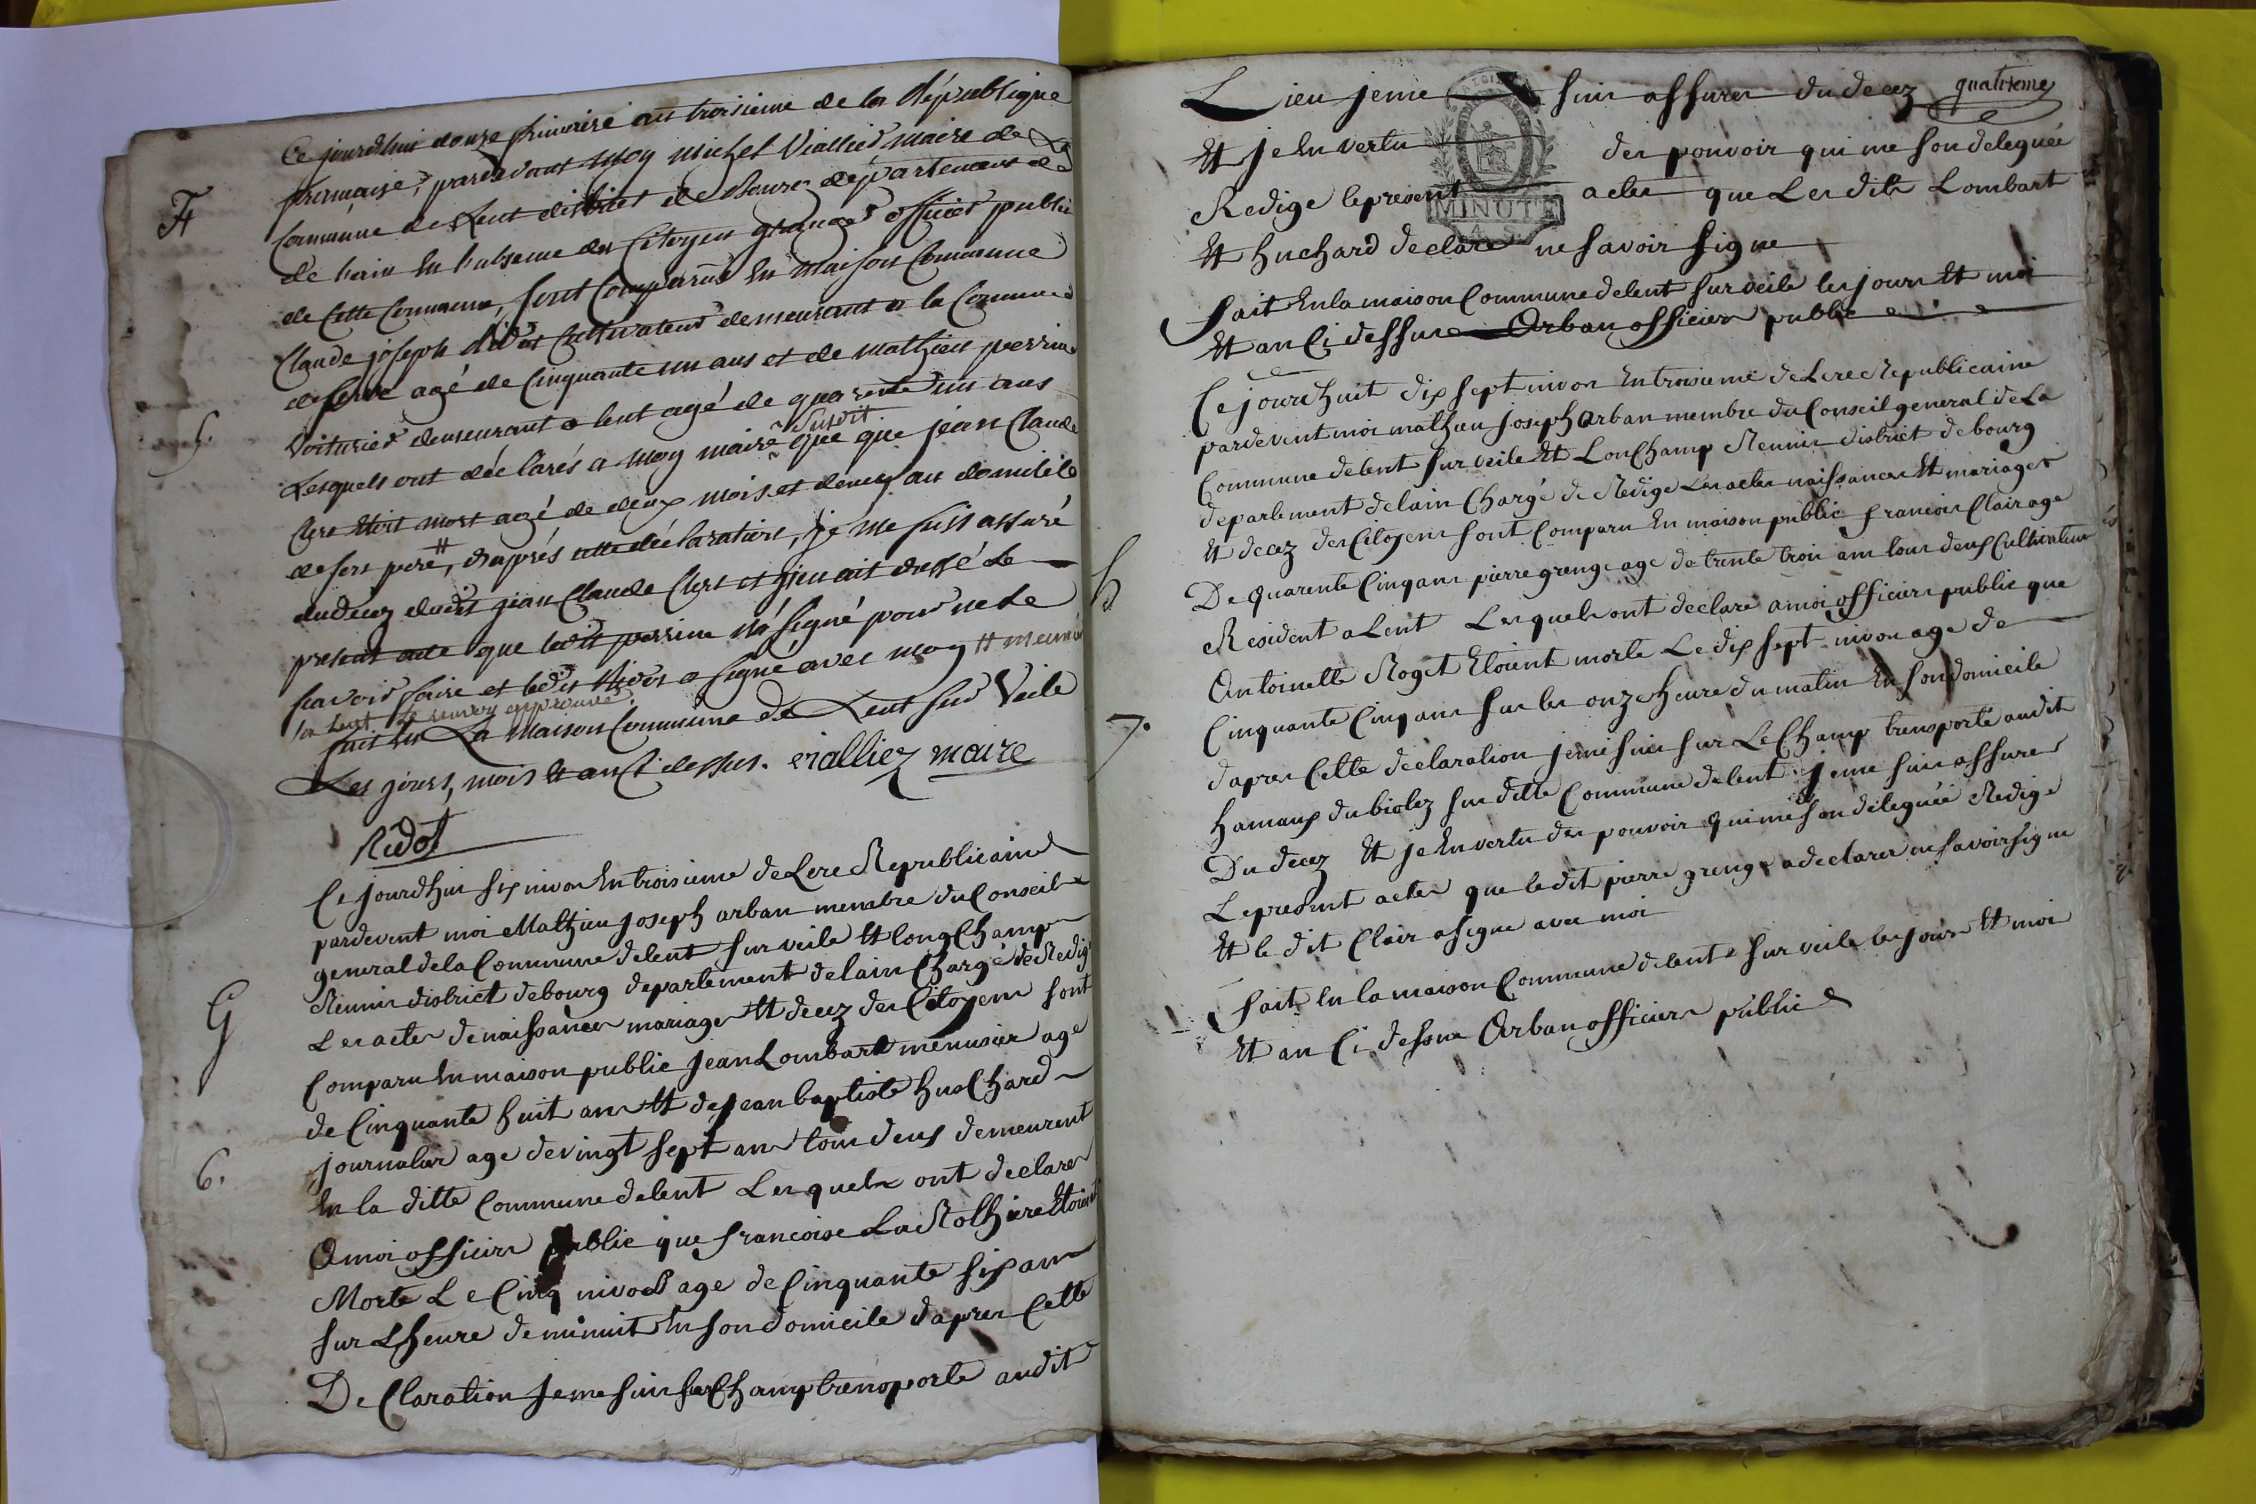 Ce jourdhui douze frimaire an troisieme de la République
françaïse, pardevant moy michel Viallier maire de La
Commune de Lent district de Bourg département de
de l'ain en l'absence du Citoyen officier public
de Cette Commune, sont Comparus en maison Commune
Claude joseph Cultivateur demeurant a la Commune
de servas agé de Cinquante un ans et de mathieu perrine
Voiturier demeurant a lent agé de quarente un ans
Lesquels ont déclarés a moy maire susdit que jean Claude
Clert etoit mort agé de deux mois et demy au domicile
de son pere #, d'après cette déclaration, je me suis assuré
du decez dudit jean Claude Clert et j'en ait dressé Le
présent acte que ledit perrine n'a signé pour ne le
scavoir faire et ledit a signé avec moy #
a Lent Le renvoy approuvé
fait en La maison Commune de Lent sur Veile
Les jours, mois et an Ci dessus. vialliez maire
Ridot
F
5.
Ce jourdhui six nivos En troisieme de Lere Republicaine
pardevent moi Mathieu joseph arban membre du Conseil
general de la Commune delent sur veile Et long Champ
Reunis district debourg departement delain Chargé de Redige
Les actes de naissances mariages Et decez des Citoyens sont
Comparu En maison public Jean Lombart menusier age
de Cinquante huit ans Et de Jean baptiste huchard
journalier age de vingt sept ans tous deus demeurent
En la ditte Commune delent Lesquels ont declarer
a moi officier public que francoise La Rothiere Etoient
Morte Le Cinq nivos age de Cinquante six ans
sur Lheure de minuit En son domicile dapres Cette
DeClaration je me suis sur Champ trensporte audit
G
6.
quatrieme
Lieu je me suis assurer du decez
Et je En vertu des pouvoir qui me son deleguée
Redige le present actes que Les dits Lombart
Et huchard declare ne savoir signe
MINUTE
fait En la maison Commune delent sur veile les jours Et moi
Et an Ci dessus Arban officier public
Ce jourdhuit dix sept nivos En troisieme de Lere Republicaine
pardevent moi mathieu joseph arban membre du Conseil general de La
Commune delent sur veile Et Lon Champ Reunis district debourg
departement delain Chargé de Redige Les actes naissances Et mariages
Et decez des Citoyens sont Comparu En maison public francois Clair age
De quarente Cinq ans pierre grenge age de trente trois ans tous deus Cultivateur
Resident a Lent Lesquels ont declare a moi officier public que
Antoinette Roget Etoient morte Le dix sept nivos age de
Cinquante Cinq ans sur les onze heure du matin En son domicile
dapres Cette declaration je me suis sur Le Champ trensporté audit
hamaux du biolez sur ditte Commune delent je me suis assurer
Du decez Et je En vertu des pouvoir qui me son deleguée Redige
Le present actes que ledit pierre grenge a declarer ne savoir signe
Et le dit Clair a signe avec moi
fait En la maison Commune delent sur veile les jours Et moi
Et an Ci dessus Arban officier public
h
7.